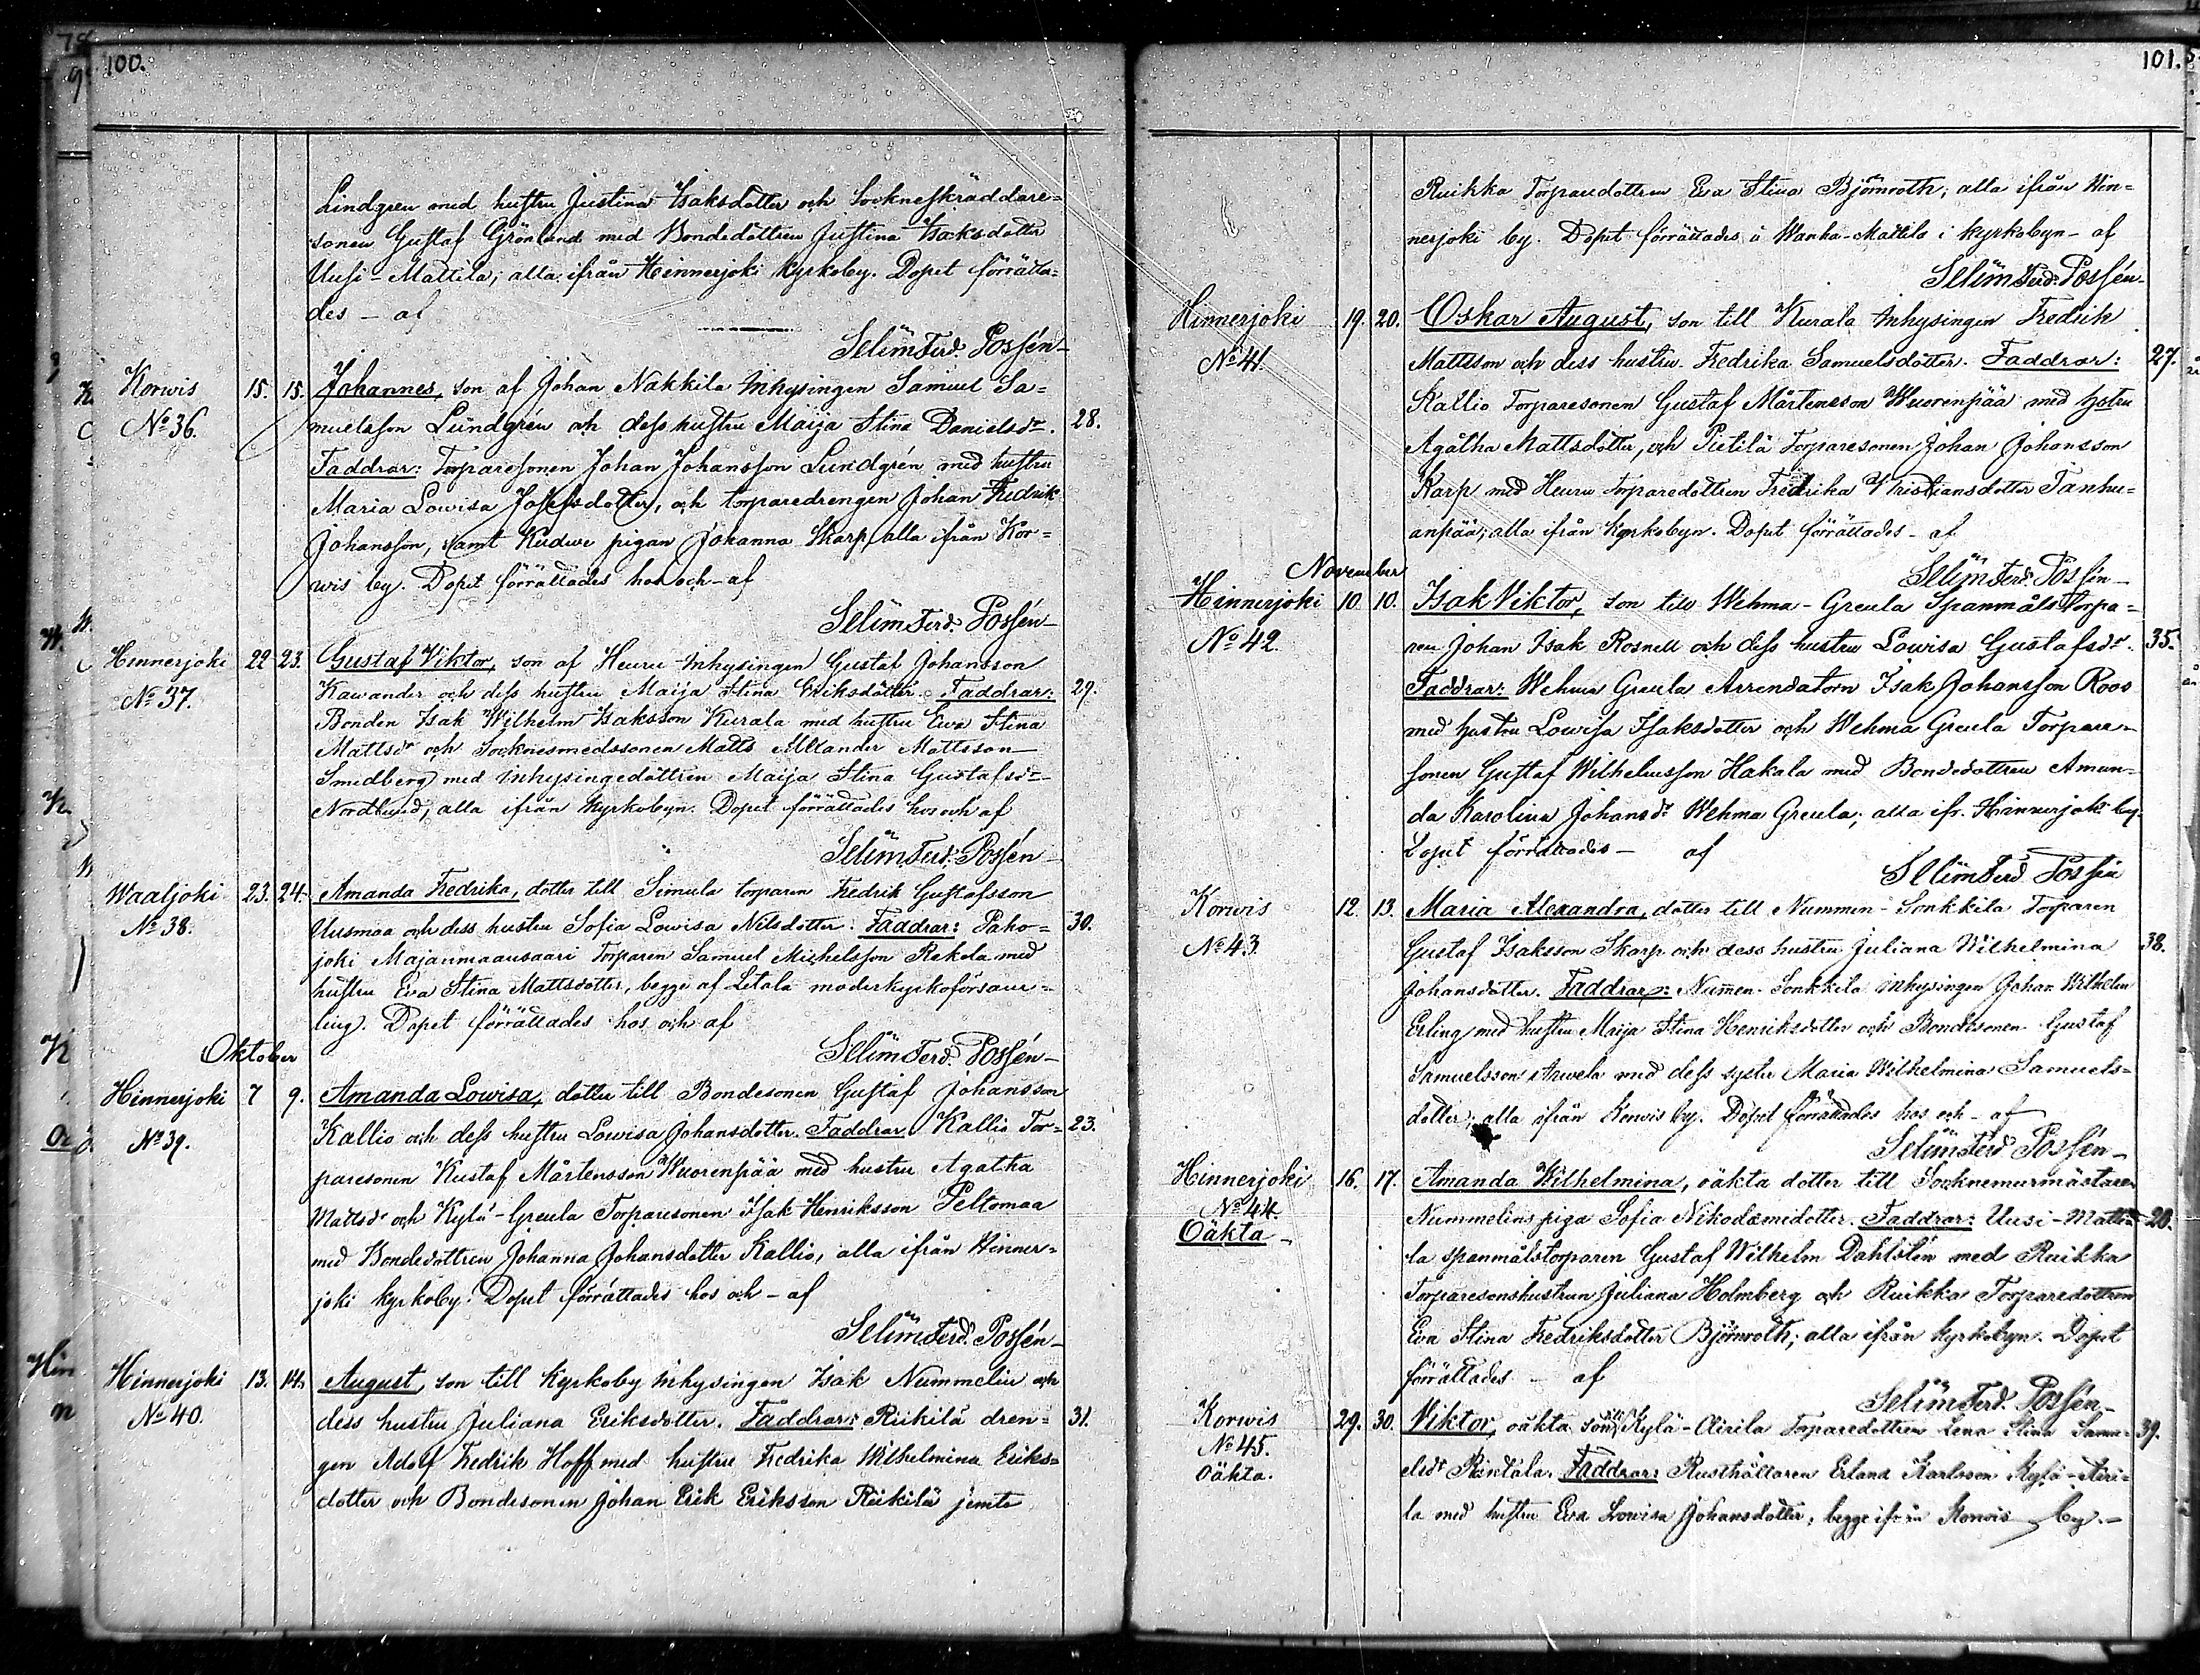 100.
Lindgren med hustru Justina Isaksdotter och Sockneskräddare=
sonen Gustaf Grönlund med Bondedottren Justina Isaksdotter
Uusi-Mattila; alla ifrån Hinnerjoki kyrkoby. Dopet förrätta=
des – af
Selim Ferd. Possén–
Korwis 15. 15. Johannes, son af Johan Nakkila Inhysingen Samuel Sa=
No 36. muelsson Lundgrén och dess hustru Maija Stina Danielsdr. 28.
Faddrar: Torparesonen Johan Johansson Lundgrén med hustru
Maria Lowisa Josefsdotter, och torparedrengen Johan Fredrik
Johansson, samt pigan Johanna Skarp, alla ifrån Kor=
wis by. Dopet förrättades hos och – af
Selim Ferd. Possén–
Hinnerjoki 22 23. Gustaf Viktor, son af Heuru Inhysingen Gustaf Johansson
No 37. Kawander och dess hustru Maija Stina Eriksdotter. Faddrar: 29.
Bonden Isak Wilhelm Isaksson Kurala med hustru Eva Stina
Mattsdr och Socknesmedssonen Matts Alexander Mattsson
Smedberg med Inhysingedottren Maija Stina Gustafsdr
Nordlund, alla ifrån kyrkobyn. Dopet förrättades hos och af
Selim Ferd. Possén–
Waaljoki 23. 24. Amanda Fredrika, dotter till Simula torparen Fredrik Gustafsson
No 38. Uusmaa och dess hustru Sofia Lowisa Nilsdotter. Faddrar: Paho= 30.
joki Majanmaansaari Torparen Samuel Michelsson Rekola med
hustru Eva Stina Mattsdotter, begge af Letala moderkyrkoförsam=
ling. Dopet förrättades hos och af
Oktober Selim Ferd. Possén–
Hinnerjoki 7 9. Amanda Lowisa, dotter till Bondesonen Gustaf Johansson
No 39. Kallio och dess hustru Lowisa Johansdotter. Faddrar: Kallio Tor= 23.
paresonen Kustaf Mårtensson Wuorenpää med hustru Agatha
Mattsdr och Kylä-Greula Torparesonen Isak Henriksson Peltomaa
med Bondedottren Johanna Johansdotter Kallio, alla ifrån Hinner=
joki kyrkoby. Dopet förrättades hos och – af
Selim Ferd. Possén–
Hinnerjoki 13. 14. August, son till Kyrkoby inhysingen Isak Nummelin och
No 40. dess hustru Juliana Eriksdotter. Faddrar: Riikilä dren= 31.
gen Adolf Fredrik Hoff med hustru Fredrika Wilhelmina Eriks=
dotter och Bondesonen Johan Erik Eriksson Riikilä jemte
101.
Ruikka Torparedottren Eva Stina Björnroth; alla ifrån Hin=
nerjoki by. Dopet förrättades å Wanha-Mattila i kyrkobyn – af
Selim Ferd. Possén–
Hinnerjoki 19. 20. Oskar August, son till Kurala Inhysingen Fredrik
No 41. Mattsson och dess hustru Fredrika Samuelsdotter. Faddrar: 27.
Kallio Torparesonen Gustaf Mårtensson Wuorenpää med hstru
Agatha Mattsdotter, och Pietilä Torparesonen Johan Johansson
Karp med Heuru torparedottren Fredrika Kristiansdotter Tanhu=
anpää; alla ifrån kyrkobyn. Dopet förrättades – af
November Selim Ferd. Possén–
Hinnerjoki 10. 10. Isak Viktor, son till Wehma-Greula Spanmåls Torpa=
No 42. ren Johan Isak Rosnell och dess hustru Lowisa Gustafsdr. 35.
Faddrar: Wehma Greula Arrendatorn Isak Johansson Roos
med hustru Lowisa Isaksdotter och Wehma Greula Torpare=
sonen Gustaf Wilhelmsson Hakala med Bondedottren Aman=
da Karolina Johansdr Wehma Greula; alla ifr. Hinnerjoki by.
Dopet förrättades – af
Selim Ferd. Possén
Korwis 12. 13. Maria Alexandra, dotter till Nummen-Sonkkila Torparen
No 43. Gustaf Isaksson Skarp och dess hustru Juliana Wilhelmina 38.
Johansdotter. Faddrar: Nummen-Sonkkila Inhysingen Johan Wilhelm
Erling med hustru Maija Stina Henriksdotter och Bondesonen Gustaf
Samuelsson Arwela med dess syster Maria Wilhelmina Samuels=
dotter; alla ifrån Korwis by. Dopet förrättades hos och – af
Selim Ferd Possén–
Hinnerjoki 16. 17. Amanda Wilhelmina, oäkta dotter till Socknemurmästaren
No 44. Nummelins piga Sofia Nikodemidotter. Faddrar: Uusi-Matti= 20.
Oäkta – la spanmålstorparen Gustaf Wilhelm Dahlstén med Ruikka
Torparesonshustrun Juliana Holmberg och Ruikka Torparedottren
Eva Stina Fredriksdotter Björnroth; alla ifrån kyrkobyn. Dopet
förrättades – af
Selim Ferd. Possén–
Korwis 29. 30. Viktor, oäkta son till Kylä-Äirilä Torparedottren Lena Stina Samu= 39.
No 45. elsdr Rintala. Faddrar: Rusthållaren Erland Karlsson Kylä-Äiri=
Oäkta. lä med hustru Eva Lowisa Johansdotter, begge ifrån Korwis by.–